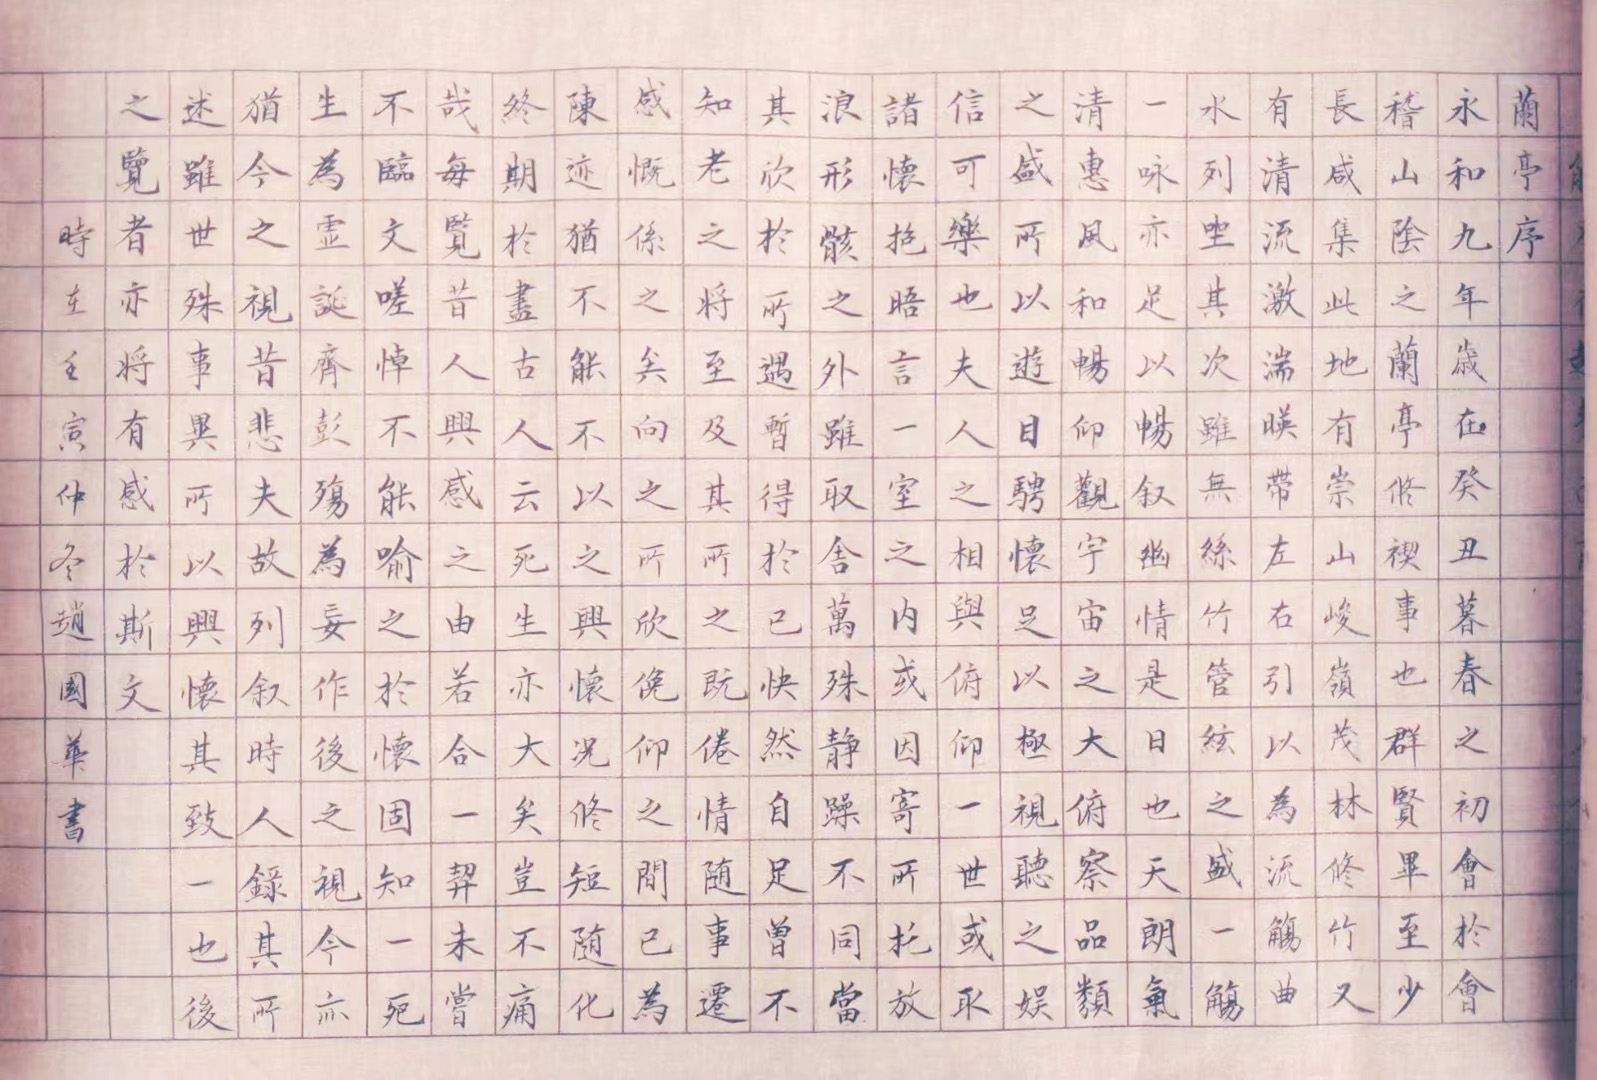 蘭亭序
永和九年歲在癸丑暮春之初會於會
稽山陰之蘭亭修禊事也群賢畢至少
長咸集此地有崇山峻嶺茂林修竹又
有清流激湍暎帶左右引以為流觴曲
水列坐其次雖無絲竹管絃之盛一觴
一咏亦足以暢叙幽情是日也天朗氣
清惠風和暢仰觀宇宙之大俯察品類
之盛所以遊目騁懷足以極視聽之娱
信可樂也夫人之相與俯仰一世或取
諸懷抱晤言一室之内或因寄所托放
浪形骸之外雖取舍萬殊静躁不同當
其欣於所遇暫得於己快然自足曾不
知老之將至及其所之既倦情随事遷
感慨係之矣向之所欣俛仰之間已為
陳迹猶不能不以之興懷况修短随化
終期於盡古人云死生亦大矣豈不痛
哉每覽昔人興感之由若合一契未嘗
不臨文嗟悼不能喻之於懷固知一死
生為虛誕齊彭殤為妄作後之視今亦
猶今之視昔悲夫故列叙時人錄其所
述雖世殊事異所以興懷其致一也後
之覽者亦將有感於斯文
時在壬寅仲冬趙國華書